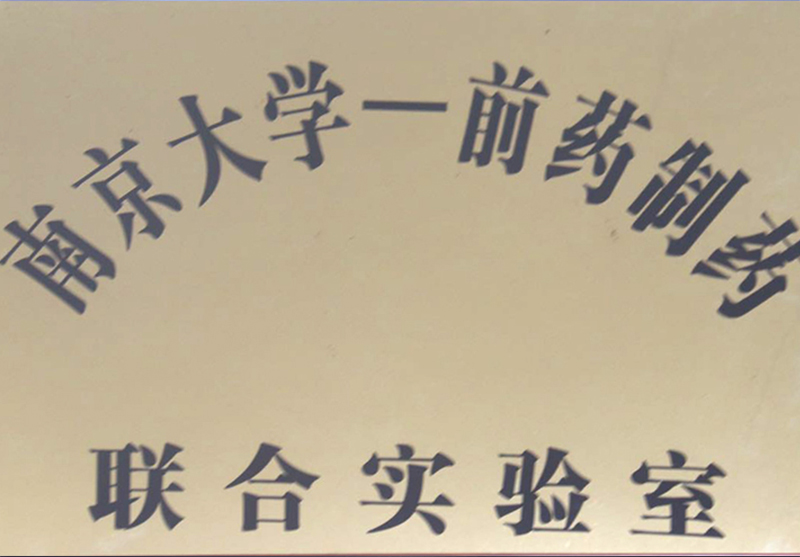 南京大学—前药制药
联合实验室